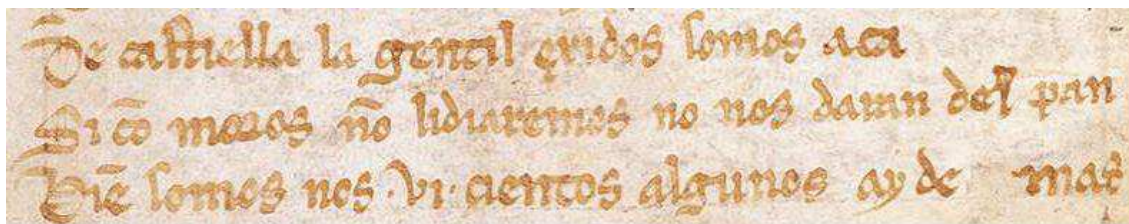 De castiella la gentil exidos somos aca
Si cõ moros nõ lidiaremos no nos daran del pan
Biẽ somos nos .vi. çientos algunos ay de mas